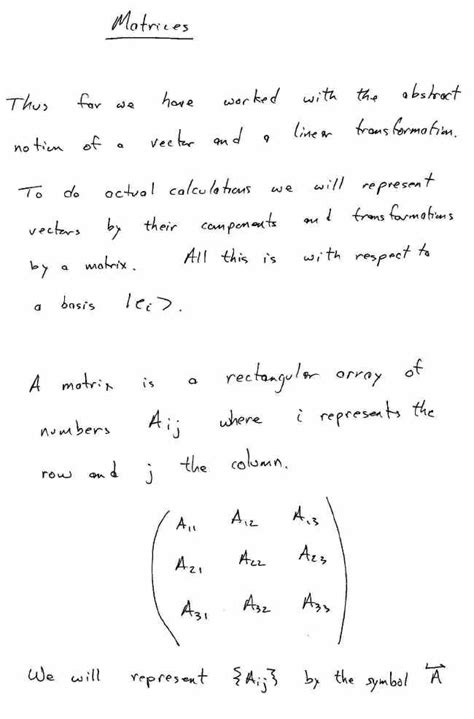 Matrices
Thus far we have worked with the abstract
notion of a vector and a linear transformation.
To do actual calculations we will represent
vectors by their components and transformations
by a matrix. All this is with respect to
a basis |eᵢ>.
A matrix is a rectangular array of
numbers Aᵢⱼ where i represents the
row and j the column.
A₁₁ A₁₂ A₁₃
A₂₁ A₂₂ A₂₃
A₃₁ A₃₂ A₃₃
We will represent {Aᵢⱼ} by the symbol A⃡